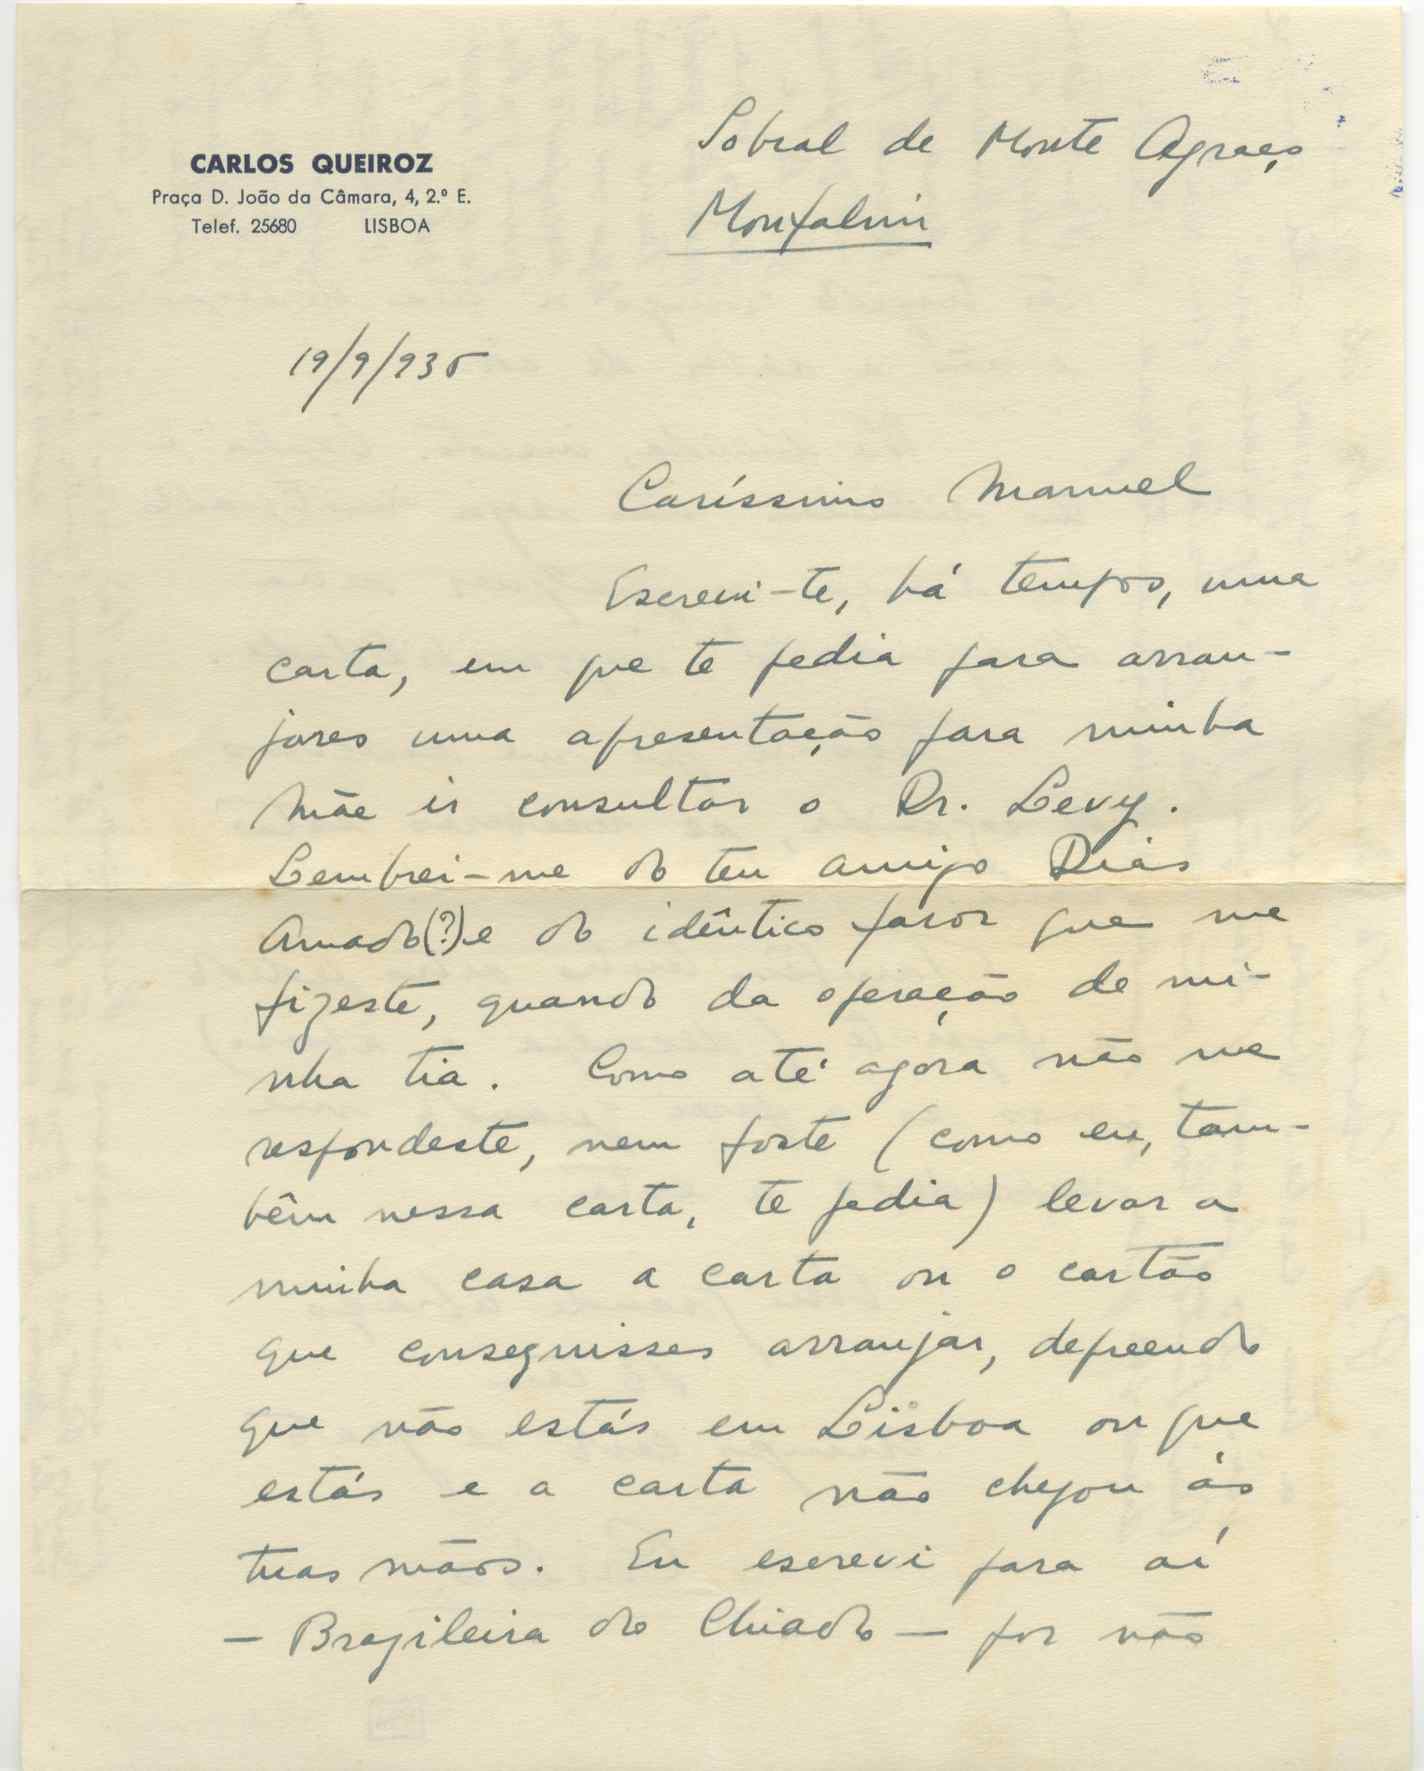 CARLOS QUEIROZ
Praça D. João da Câmara, 4, 2.º E.
Telef. 25680 LISBOA
Sobral de Monte Agraço
Monfalim
19/9/935
Caríssimo Manuel
Escrevi-te, há tempos, uma
carta, em que te pedia para arran-
jares uma apresentação para minha
Mãe ir consultar o Dr. Levy.
Lembrei-me do teu amigo Dias
Amado(?) e do idêntico favor que me
fizeste, quando da operação de mi-
nha tia. Como até agora não me
respondeste, nem foste (como eu, tam-
bêm nessa carta, te pedia) levar a
minha casa a carta ou o cartão
que conseguisses arranjar, depreendo
que não estás em Lisboa ou que
estás e a carta não chegou às
tuas mãos. Eu escrevi para aí
— Brazileira do Chiado — por não